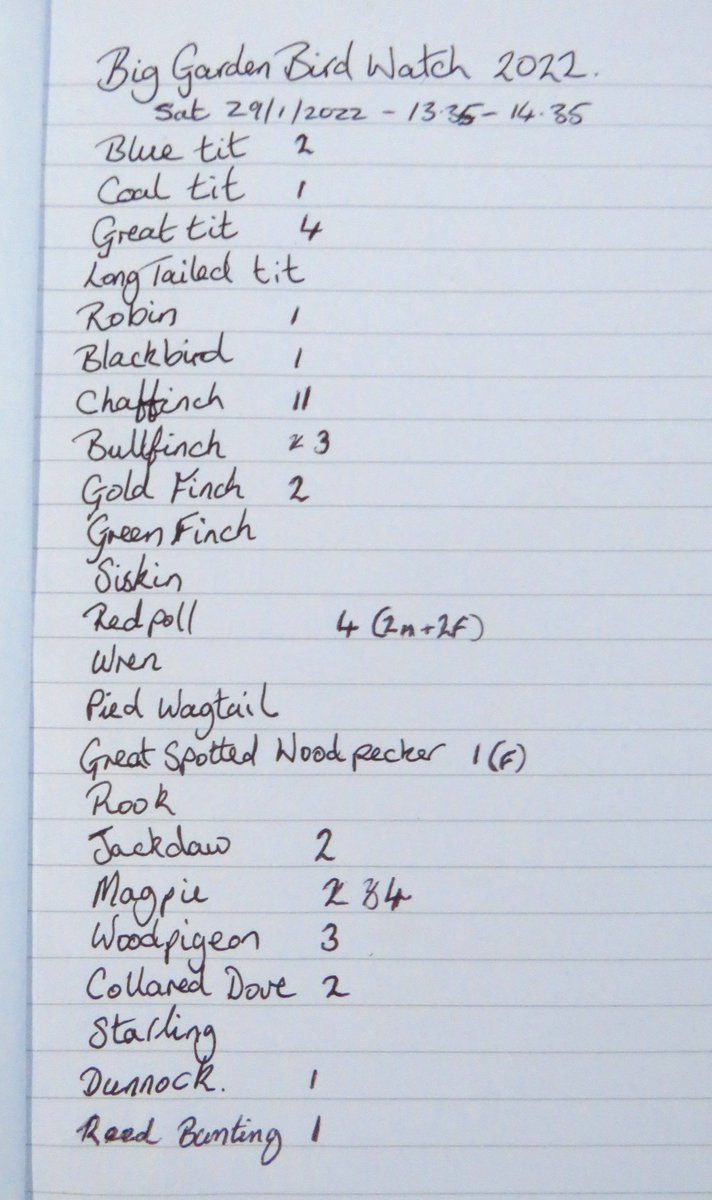 Big Garden Bird Watch 2022.
Sat 29/1/2022 - 13.35 - 14.35
Blue tit 2
Coal tit 1
Great tit 4
Long Tailed tit
Robin 1
Blackbird 1
Chaffinch 11
Bullfinch 2 3
Gold Finch 2
Green Finch
Siskin
Redpoll 4 (2m+2F)
Wren
Pied Wagtail
Great Spotted Woodpecker 1 (F)
Rook
Jackdaw 2
Magpie 2 3 4
Woodpigeon 3
Collared Dove 2
Starling
Dunnock. 1
Reed Bunting 1